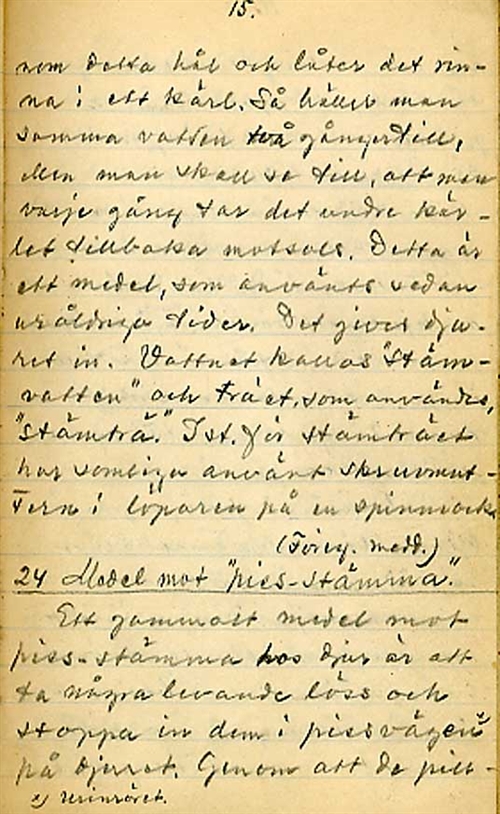 15.
nom detta hål och låter det rin-
na i ett kärl. Så häller man
samma vatten två gånger till,
Men man skall se till, att man
varje gång tar det undre kär-
let tillbaka motsols. Detta är
ett medel, som använts sedan
uråldriga tider. Det gives dju-
ret in. Vattnet kallas "stäm-
vatten" och träet, som användes,
"stämträ." I st. för stämträet
har somliga använt skruvmut-
tern i löparen på en spinnrock.
(Föreg. medd.)
24 Medel mot "piss-stämma".
Ett gammalt medel mot
piss-stämma hos djur är att
ta några levande löss och
stoppa in dem i pissvägen x)
på djuret. Genom att de pill-
x) urinröret.